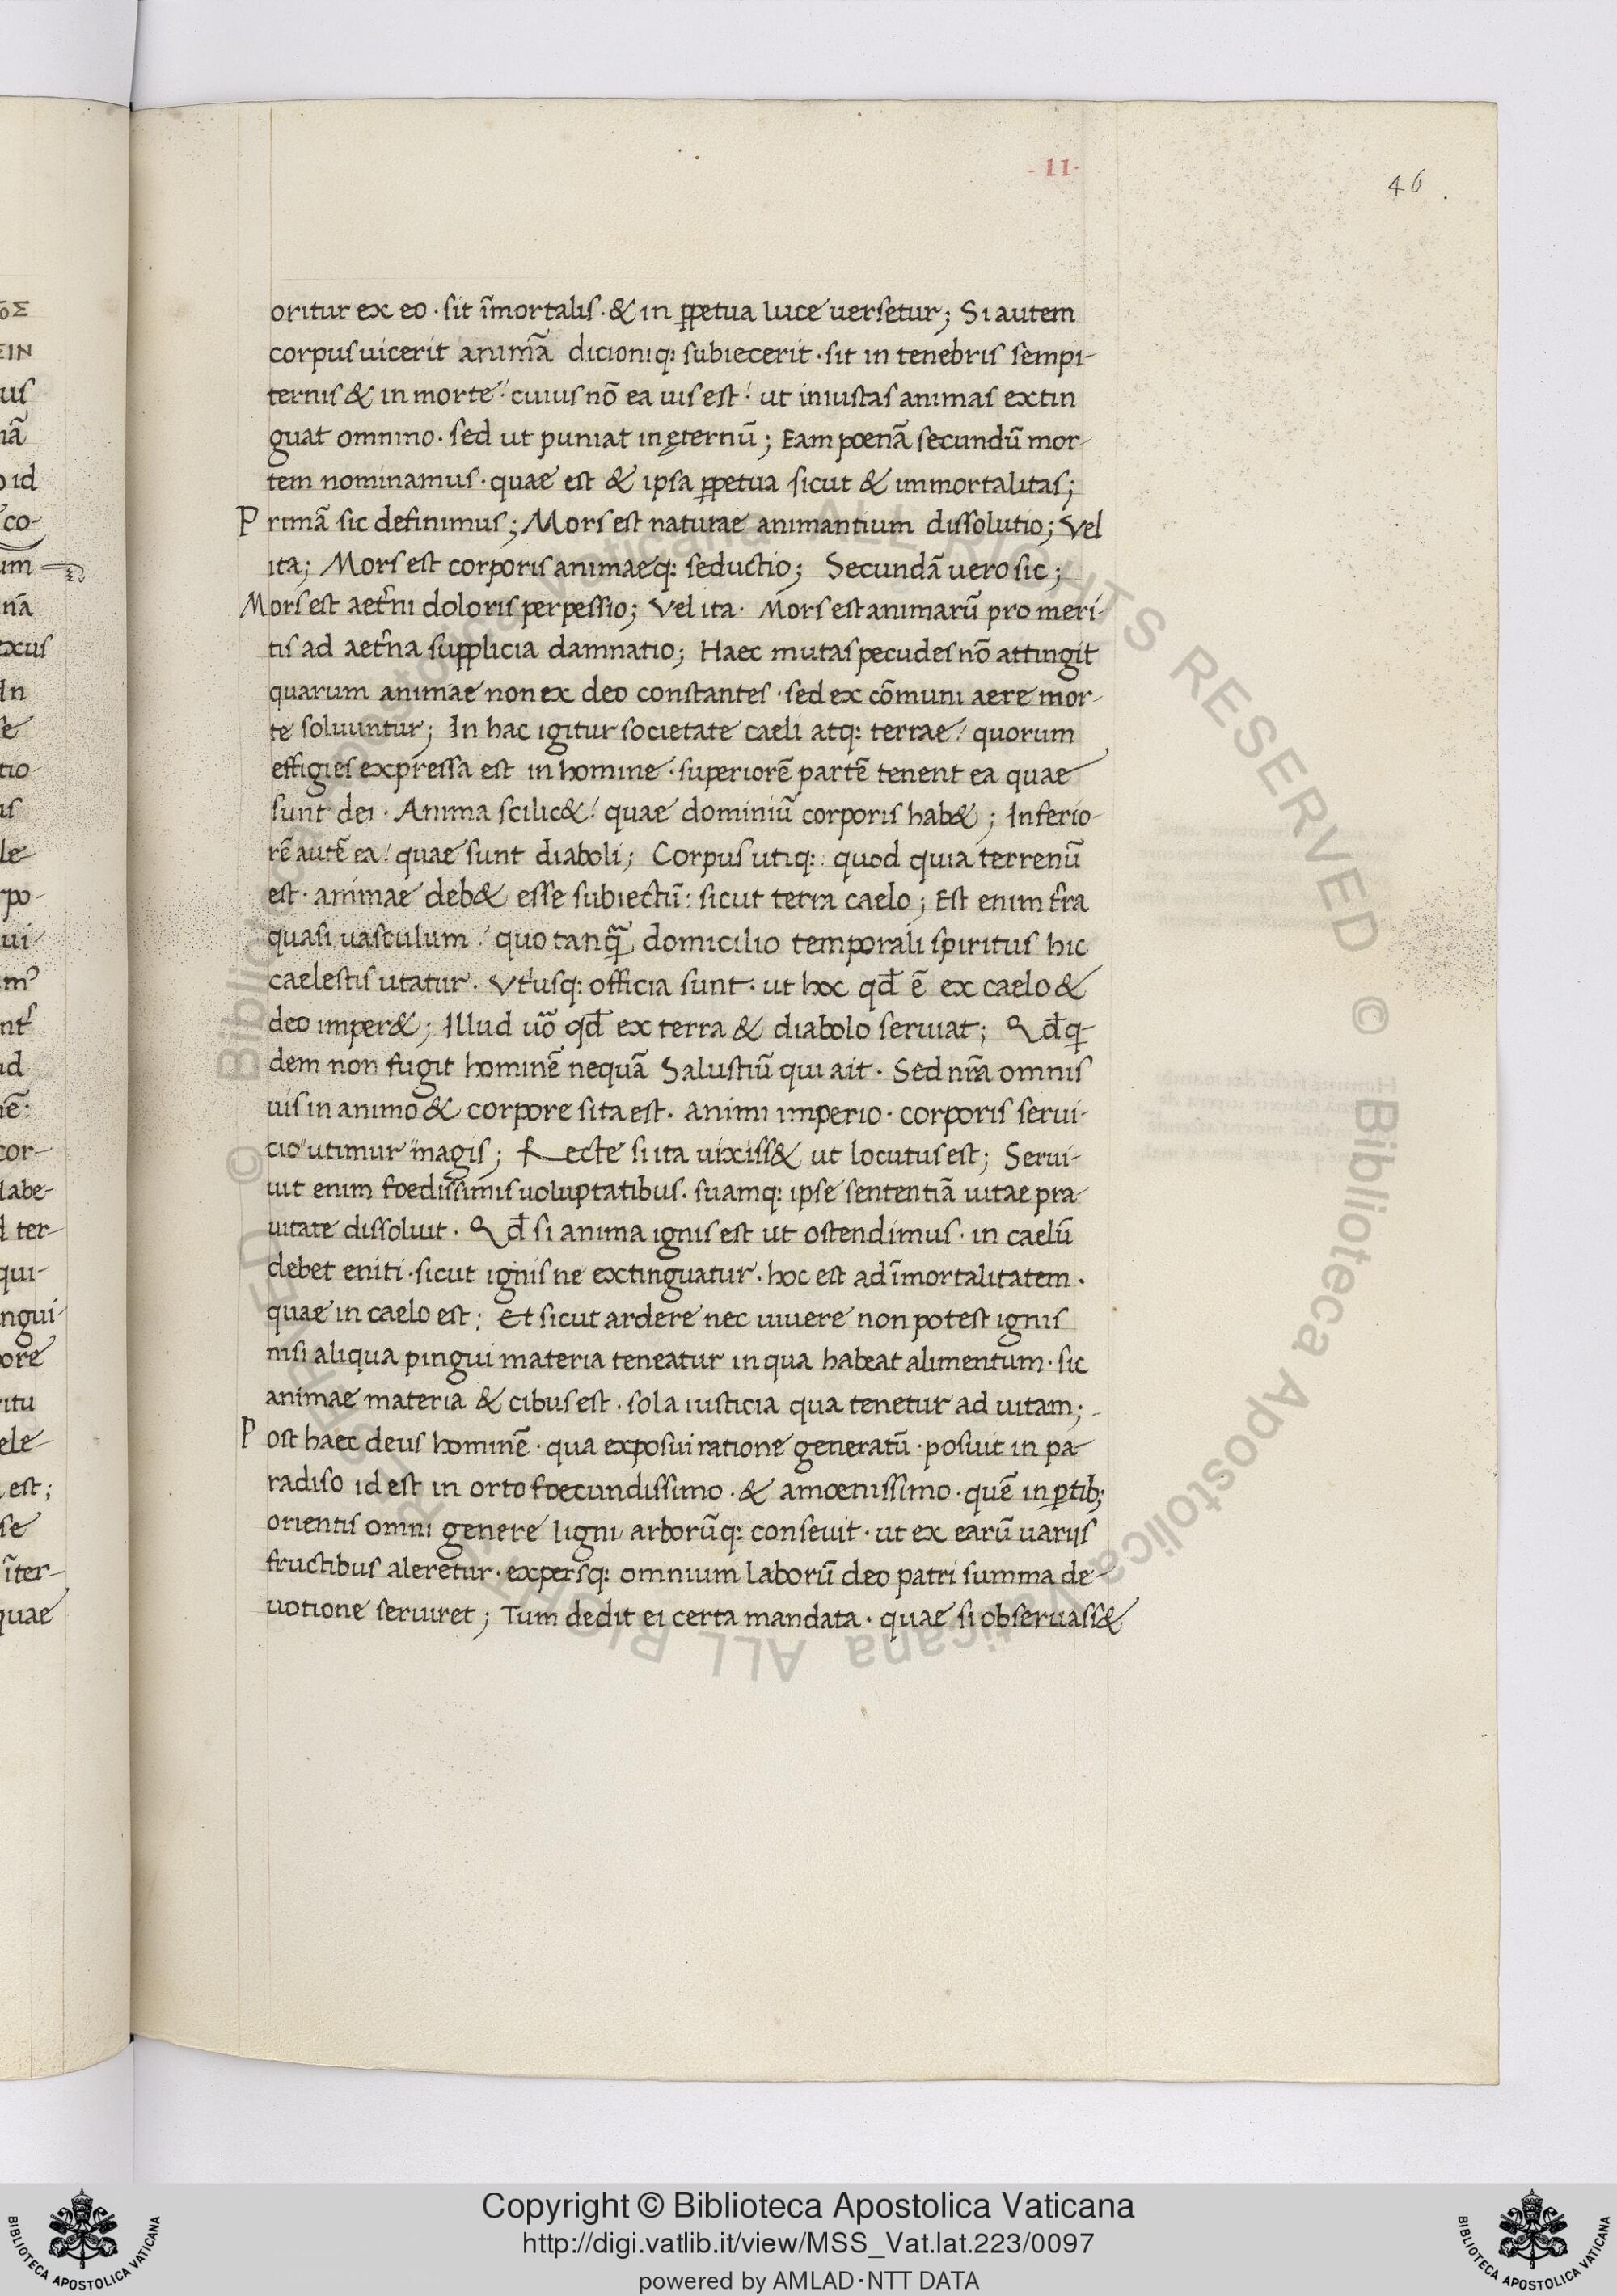 - II -
46
oritur ex eo · sit īmortalis · & in ꝑpetua luce uersetur; Si autem
corpus uicerit animā dicioniq: subiecerit · sit in tenebris sempi-
ternis & in morte! cuius nō ea uis est! ut iniustas animas extin
guat omnino · sed ut puniat in ęternū; Eam poenā secundū mor-
tem nominamus · quae est & ipsa ꝑpetua sicut & immortalitas;
Primā sic definimus; Mors est naturae animantium dissolutio; Vel
ita; Mors est corporis animaeq: seductio; Secundā uero sic;
Mors est aet̄ni doloris perpessio; Vel ita · Mors est animarū pro meri-
tis ad aet̄na supplicia damnatio; Haec mutas pecudes nō attingit
quarum animae non ex deo constantes · sed ex cōmuni aere mor-
te soluuntur; In hac igitur societate caeli atq: terrae! quorum
effigies expressa est in homine · superiorē partē tenent ea quae
sunt dei · Anima scilic&! quae dominiū corporis hab&; Inferio-
rē autē ea! quae sunt diaboli; Corpus utiq: quod quia terrenū
est · animae deb& esse subiectū: sicut terra caelo; Est enim t̄ra
quasi uasculum! quo tanqꝫ̄ domicilio temporali spiritus hic
caelestis utatur · Vt̄usq: officia sunt · ut hoc qđ ē ex caelo &
deo imper&; Illud uō qđ ex terra & diabolo seruiat; Qđq-
dem non fugit hominē nequā Salustiū qui ait · Sed nr̄a omnis
uis in animo & corpore sita est · animi imperio · corporis serui-
cio" utimur "magis; Recte si ita uixiss& ut locutus est; Serui-
uit enim foedissimis uoluptatibus · suamq: ipse sententiā uitae pra-
uitate dissoluit · Qđ si anima ignis est ut ostendimus · in caelū
debet eniti · sicut ignis ne extinguatur · hoc est ad īmortalitatem ·
quae in caelo est; Et sicut ardere nec uiuere non potest ignis
nisi aliqua pingui materia teneatur in qua habeat alimentum · sic
animae materia & cibus est · sola iusticia qua tenetur ad uitam; -
Post haec deus hominē · qua exposui ratione generatū · posuit in pa-
radiso id est in orto foecundissimo · & amoenissimo · quē in ꝑtib;
orientis omni genere ligni arborūq: conseuit · ut ex earū uariis
fructibus aleretur · expersq: omnium laborū deo patri summa de-
uotione seruiret; Tum dedit ei certa mandata · quae si obseruass&
Copyright © Biblioteca Apostolica Vaticana
http://digi.vatlib.it/view/MSS_Vat.lat.223/0097
powered by AMLAD·NTT DATA